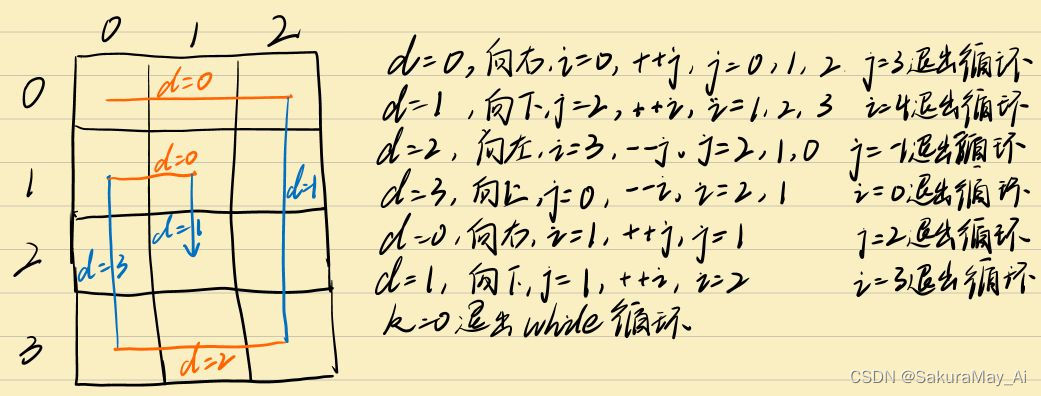 0 1 2
0
1
2
3
d=0
d=0
d=1
d=1
d=3
d=2
d=0,向右,i=0,++j,j=0,1,2 j=3退出循环
d=1,向下,j=2,++i,i=1,2,3 i=4退出循环
d=2,向左,i=3,--j,j=2,1,0 j=-1退出循环
d=3,向上,j=0,--i,i=2,1 i=0退出循环
d=0,向右,i=1,++j,j=1 j=2退出循环
d=1,向下,j=1,++i,i=2 i=3退出循环
k=0退出while循环.
CSDN @SakuraMay_Ai